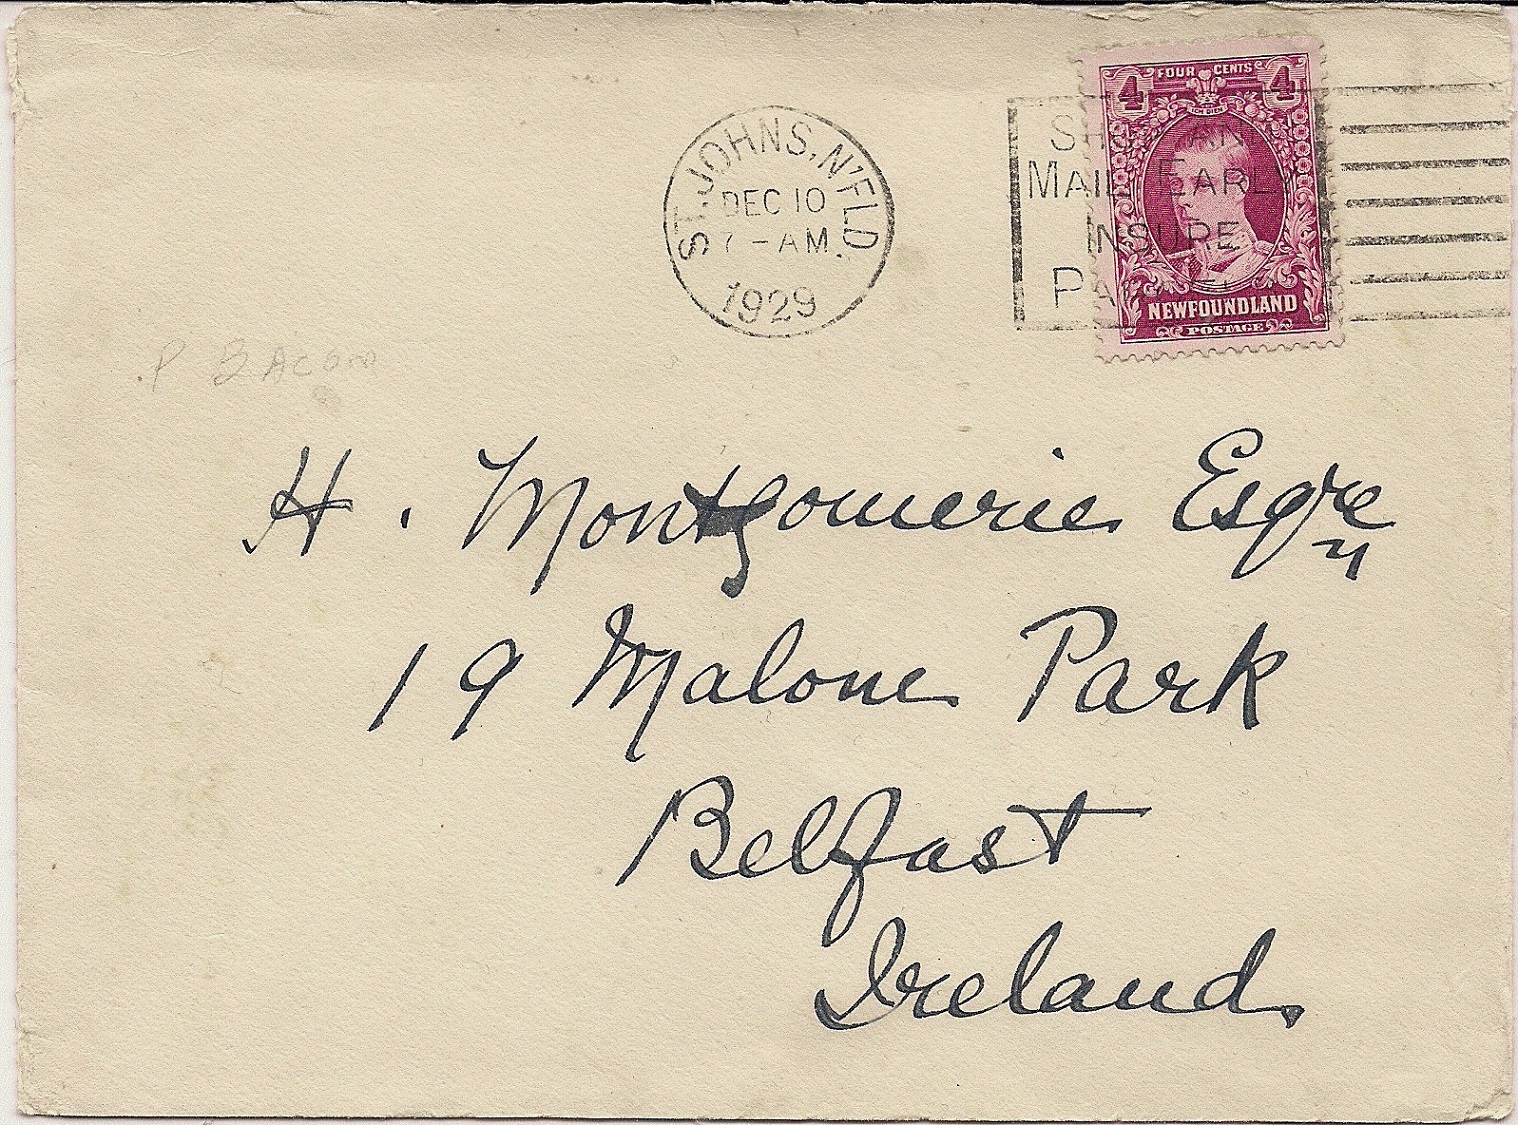 4 FOUR CENTS 4
ICH DIEN
ST. JOHNS, N'FLD.
DEC 10
7 - AM
1929
SHOP AN
MAIL EARL
INSURE
NEWFOUNDLAND
POSTAGE
P BACON
H. Montgomerie Esqre
19 Malone Park
Belfast
Ireland